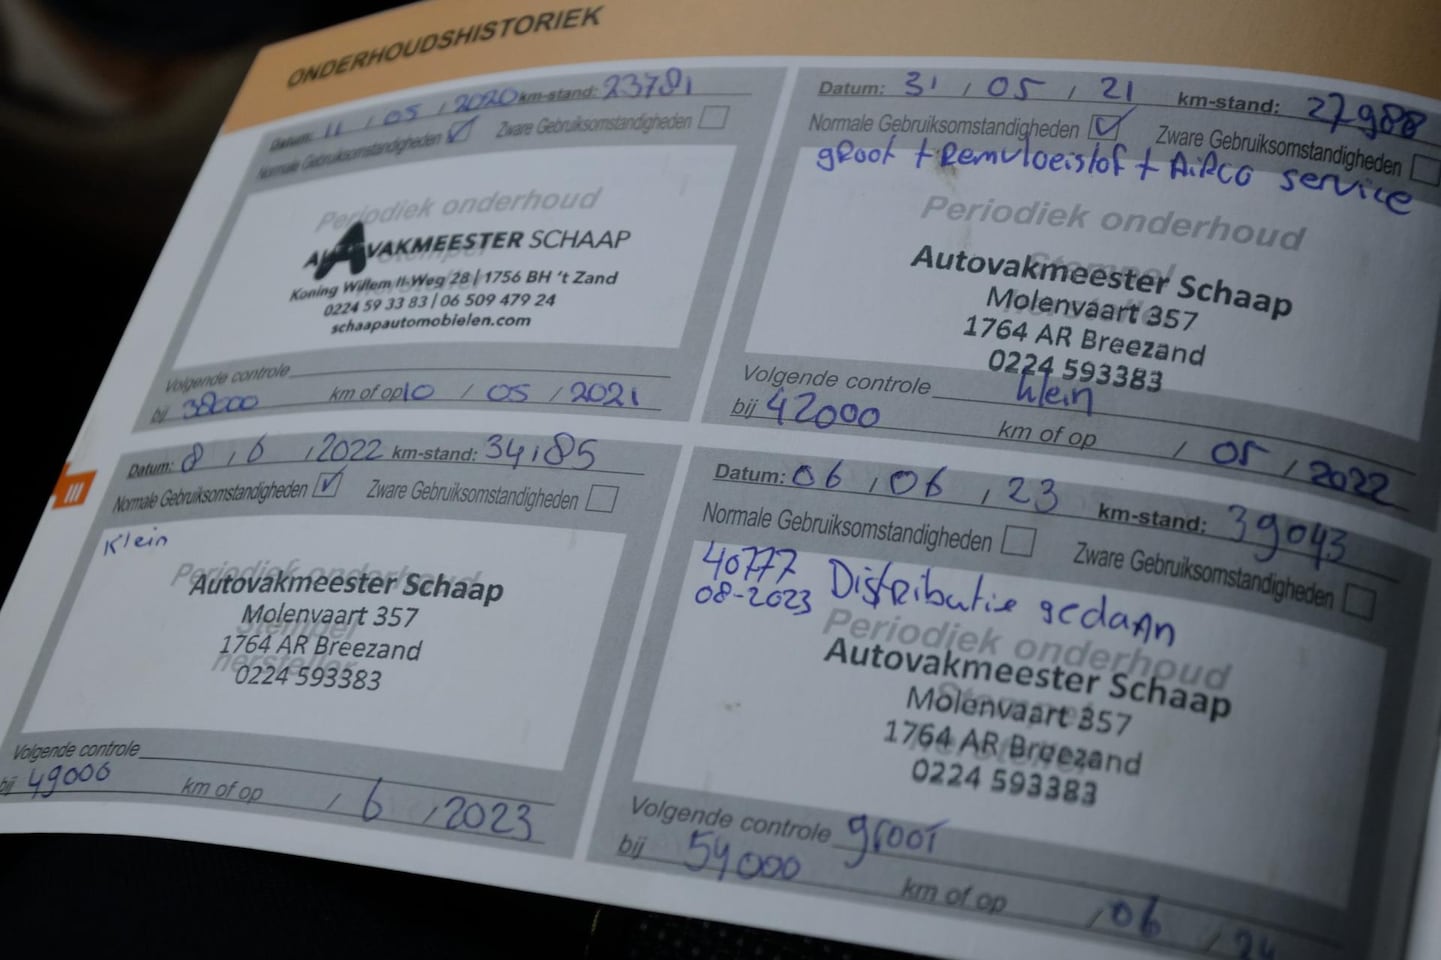 ONDERHOUDSHISTORIEK
Datum: 11 / 05 / 2020 km-stand: 23781
Normale Gebruiksomstandigheden ✓ Zware Gebruiksomstandigheden
Periodiek onderhoud
AUTOVAKMEESTER SCHAAP
Koning Willem II-Weg 28 | 1756 BH 't Zand
0224 59 33 83 | 06 509 479 24
schaapautomobielen.com
Volgende controle
bij 38000 km of op 10 / 05 / 2021
Datum: 31 / 05 / 21 km-stand: 27988
Normale Gebruiksomstandigheden ✓ Zware Gebruiksomstandigheden
groot + Remvloeistof + AiRCO service
Periodiek onderhoud
Stempel
Autovakmeester Schaap
Molenvaart 357
1764 AR Breezand
0224 593383
Volgende controle klein
bij 42000 km of op / 05 / 2022
III
Datum: 8 / 6 / 2022 km-stand: 34185
Normale Gebruiksomstandigheden ✓ Zware Gebruiksomstandigheden
Klein
Periodiek onderhoud
Autovakmeester Schaap
Molenvaart 357
Stempel
1764 AR Breezand
hersteller
0224 593383
Volgende controle
bij 49000 km of op / 6 / 2023
Datum: 06 / 06 / 23 km-stand: 39043
Normale Gebruiksomstandigheden Zware Gebruiksomstandigheden
40777 Distributie gedaan
08-2023
Periodiek onderhoud
Autovakmeester Schaap
Molenvaart 357
1764 AR Breezand
0224 593383
Volgende controle groot
bij 54000 km of op / 06 / 24